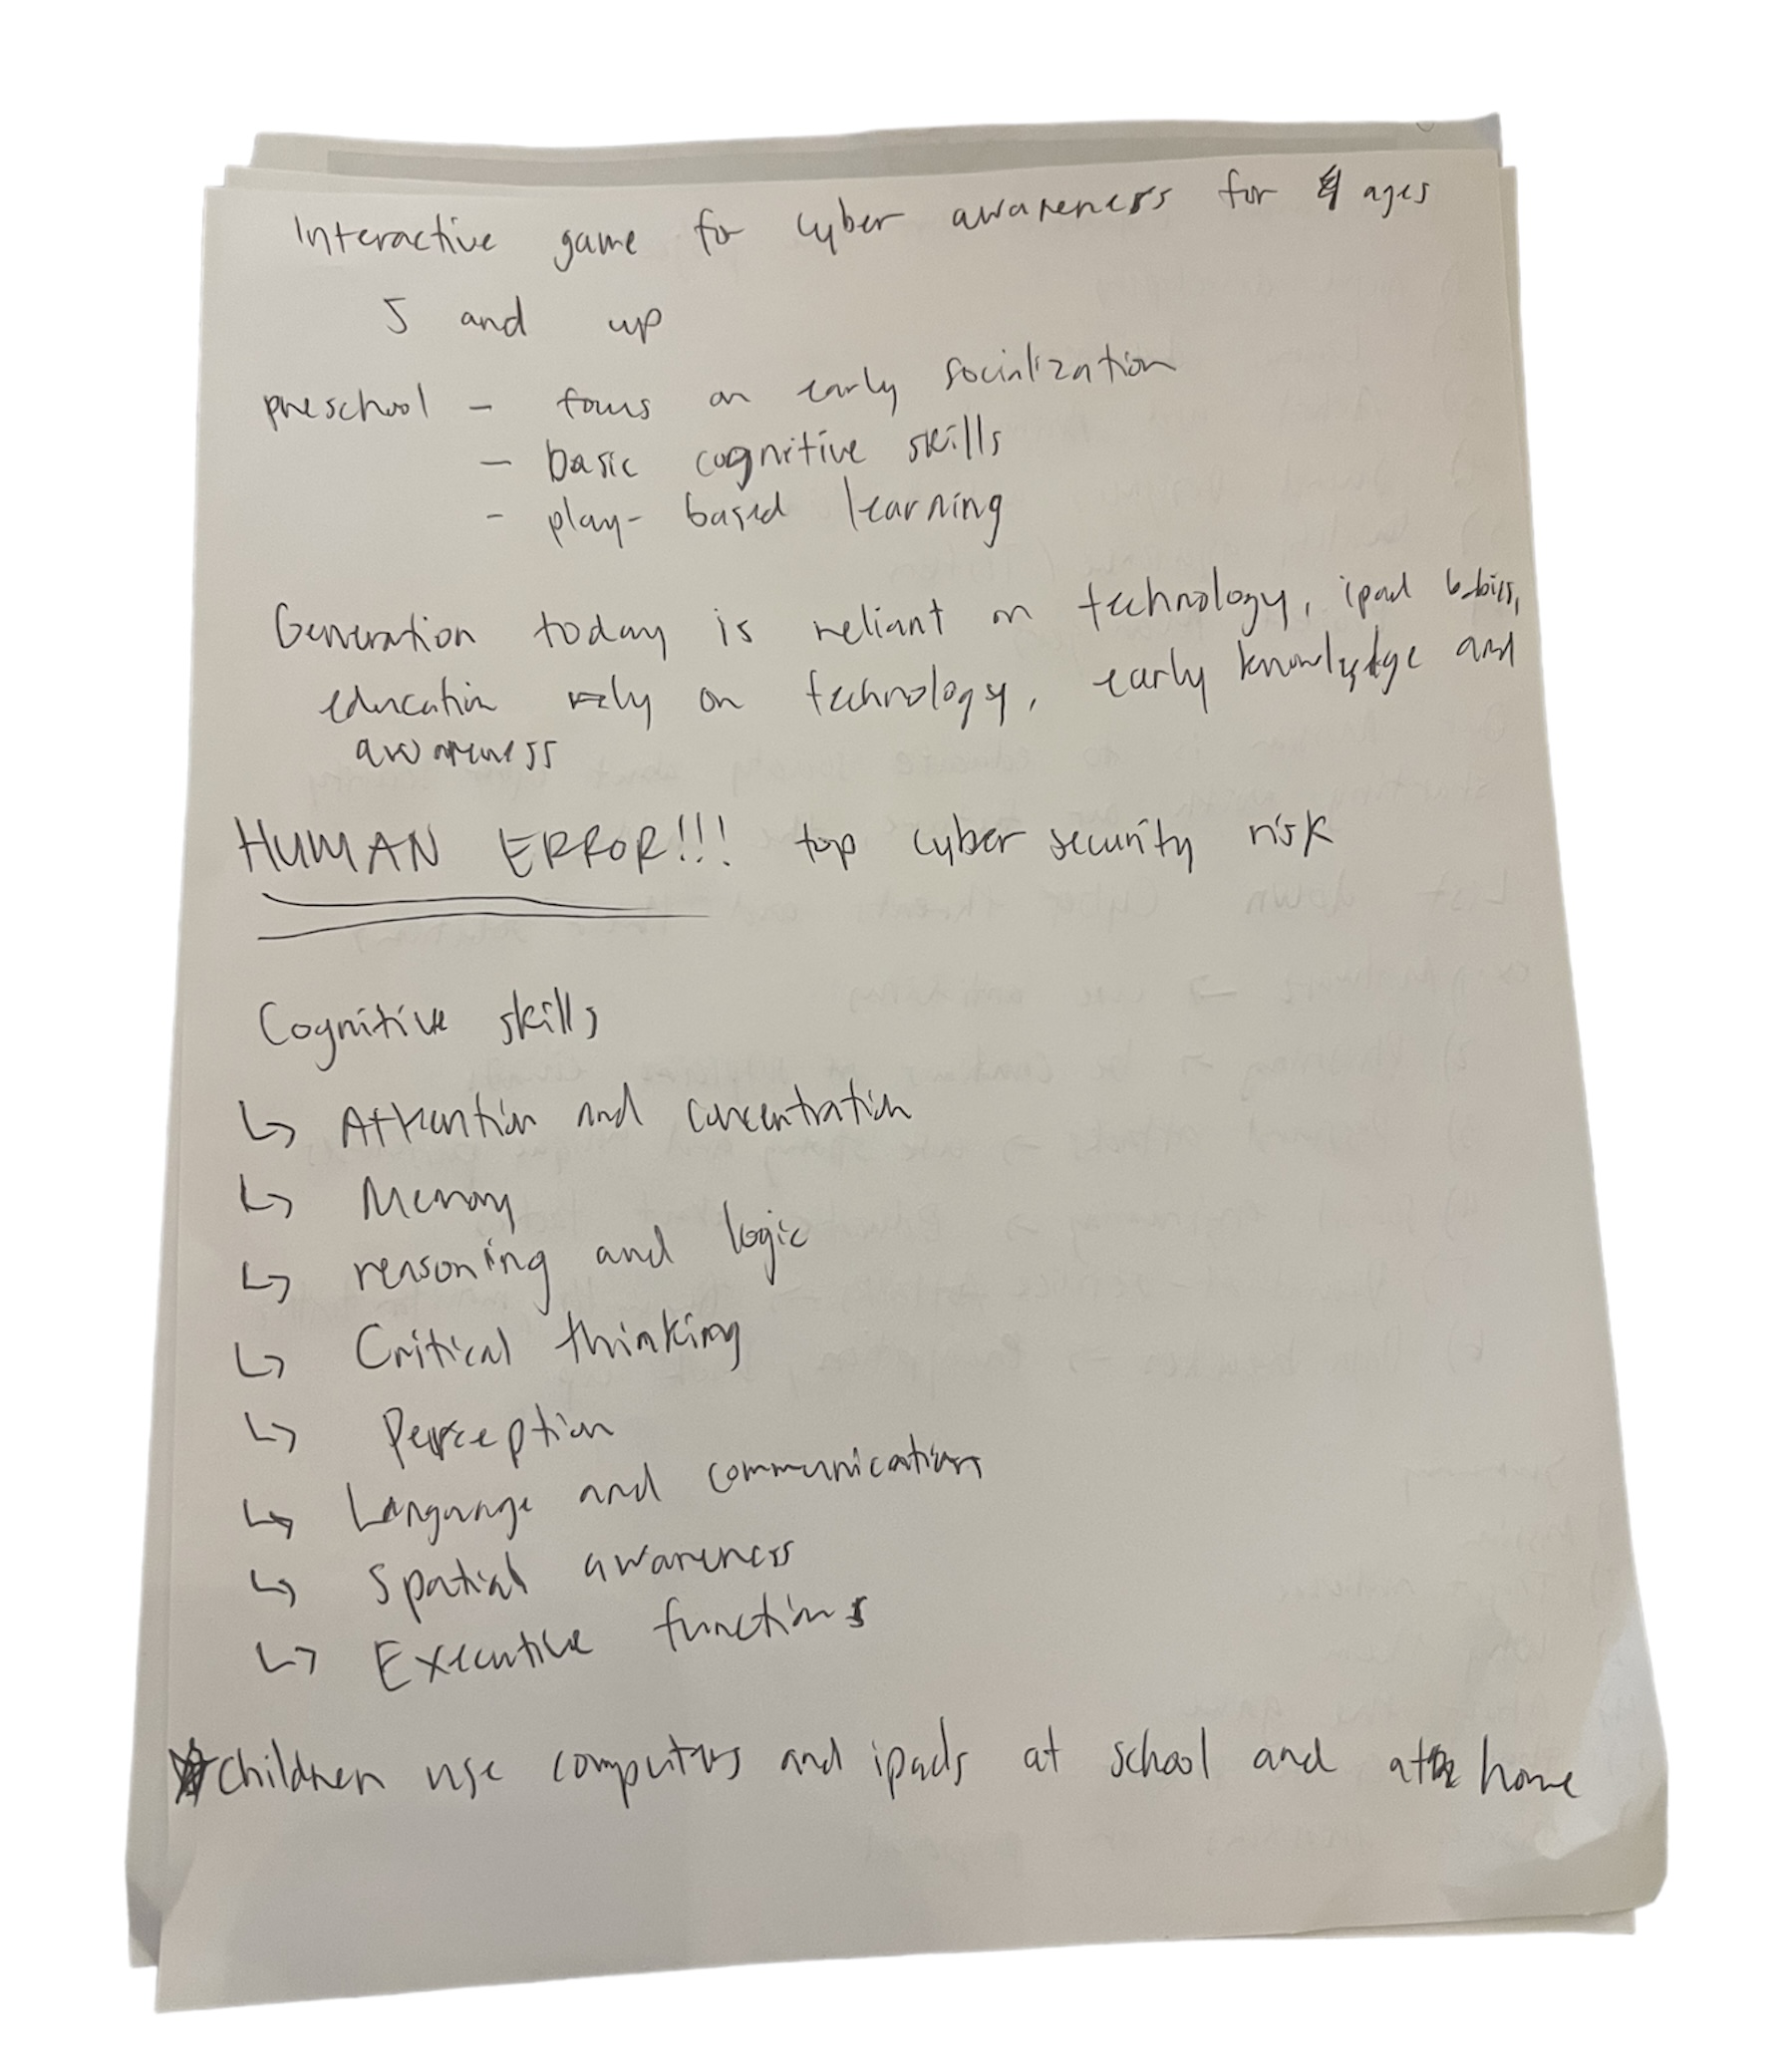 Interactive game for cyber awareness for ages
5 and up
preschool - focus on early socialization
- basic cognitive skills
- play-based learning
Generation today is reliant on technology, ipad babies,
education rely on technology, early knowledge and
awareness
HUMAN ERROR!!! top cyber security risk
Cognitive skills
↳ Attention and concentration
↳ Memory
↳ reasoning and logic
↳ Critical thinking
↳ Perception
↳ Language and communication
↳ Spatial awareness
↳ Executive functions
☆ children use computers and ipads at school and at home